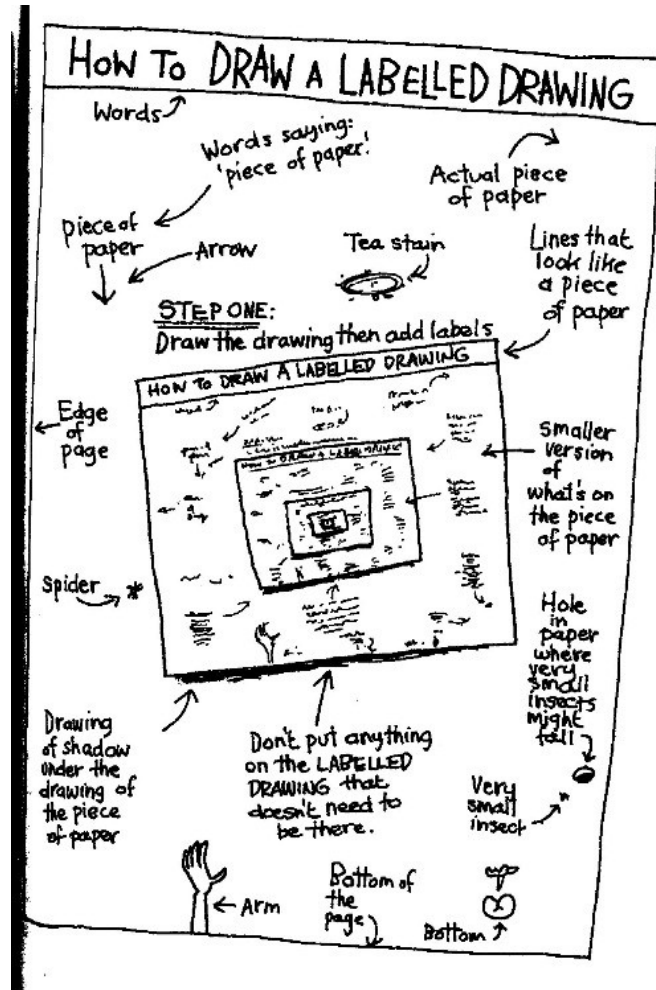 HOW TO DRAW A LABELLED DRAWING
Words
Words saying:
'piece of paper.'
Actual piece
of paper
piece of
paper
Arrow
Tea stain
Lines that
look like
a piece
of paper
STEP ONE:
Draw the drawing then add labels
HOW TO DRAW A LABELLED DRAWING
HOW TO DRAW A LABELLED DRAWING
Edge
of
page
Smaller
version
of
what's on
the piece
of paper
Spider
Hole
in
paper
where
very
small
insects
might
fall
Drawing
of shadow
under the
drawing of
the piece
of paper
Don't put anything
on the LABELLED
DRAWING that
doesn't need to
be there.
Very
small
insect
Arm
Bottom of
the
page
Bottom